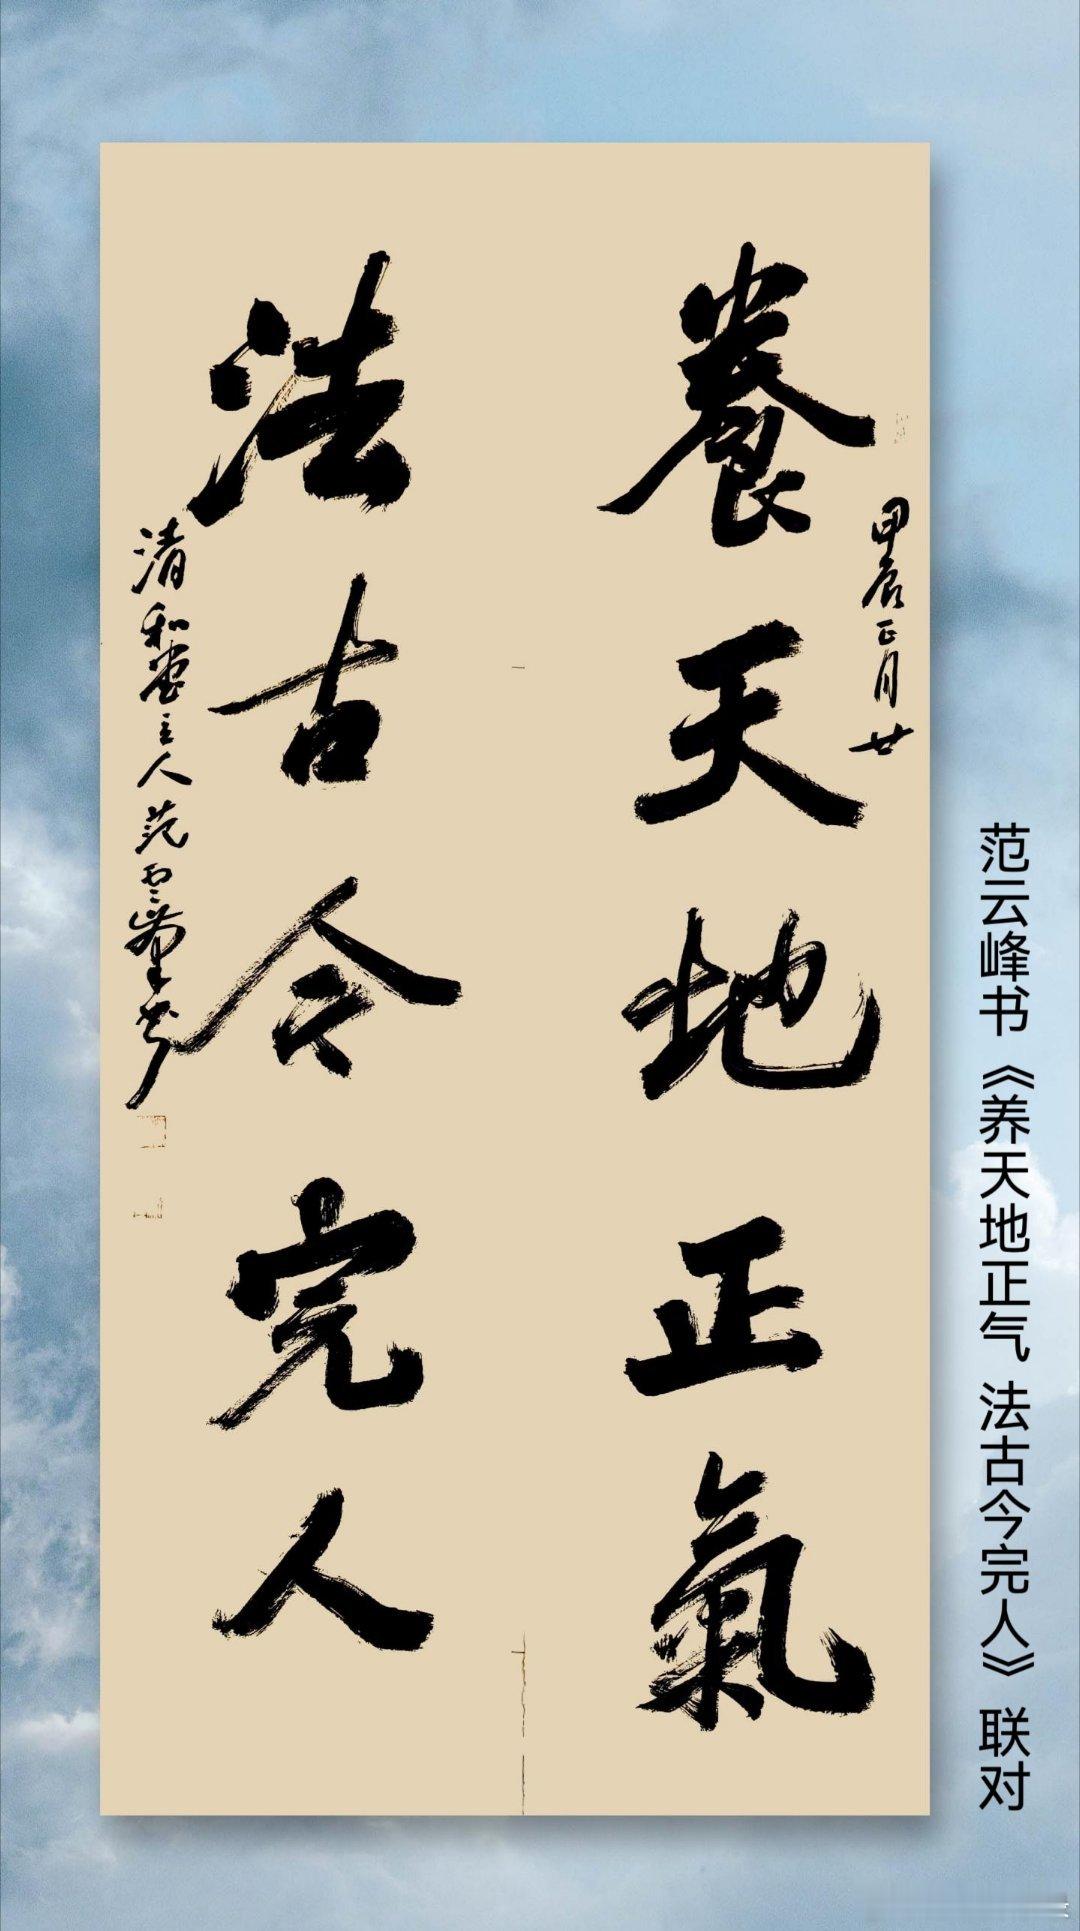 養天地正氣
甲辰正月廿
法古今完人
清和堂主人范雲峰书
范云峰书《养天地正气 法古今完人》联对